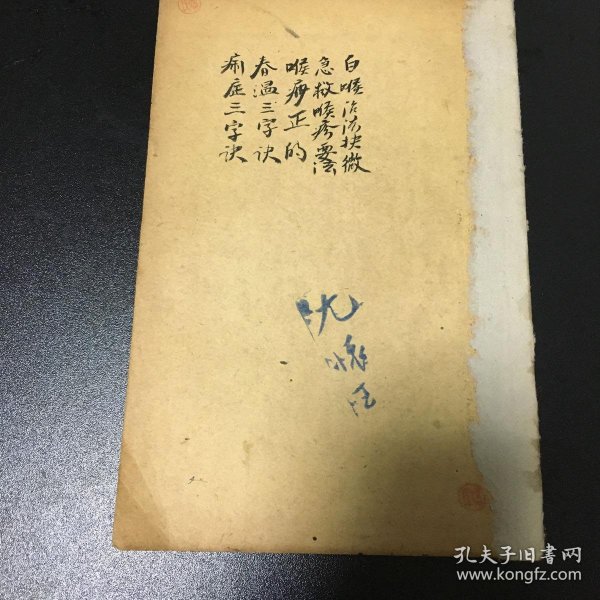 白喉治法抉微
急救喉疹要法
喉痧正的
春温三字诀
痢症三字诀
沈
孔夫子旧书网
www.kongfz.com